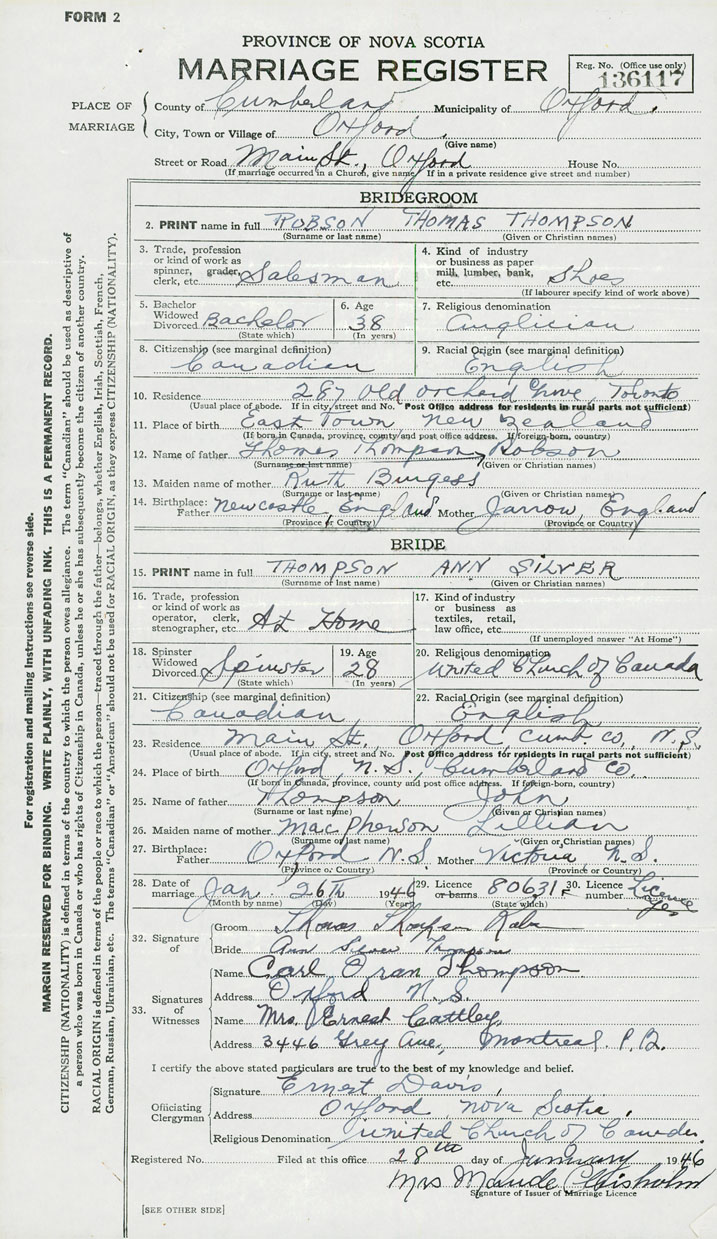 FORM 2
PROVINCE OF NOVA SCOTIA
MARRIAGE REGISTER
Reg. No. (Office use only)
136117
PLACE OF MARRIAGE
County of Cumberland Municipality of Oxford.
City, Town or Village of Oxford.
(Give name)
Street or Road Main St., Oxford House No.
(If marriage occurred in a Church, give name) If in a private residence give street and number)
BRIDEGROOM
2. PRINT name in full ROBSON THOMAS THOMPSON
(Surname or last name) (Given or Christian names)
3. Trade, profession or kind of work as spinner, grader, clerk, etc. Salesman
4. Kind of industry or business as paper mill, lumber, bank, etc. Shoes
(If labourer specify kind of work above)
5. Bachelor Widowed Divorced Bachelor
(State which)
6. Age 38
(In years)
7. Religious denomination
Anglician
8. Citizenship (see marginal definition)
Canadian
9. Racial Origin (see marginal definition)
English
10. Residence 287 Old Orchard Grove, Toronto
(Usual place of abode. If in city, street and No. Post Office address for residents in rural parts not sufficient)
11. Place of birth East Town New Zealand
(If born in Canada, province, county and post office address. If foreign-born, country)
12. Name of father Thomas Thompson Robson
(Surname or last name) (Given or Christian names)
13. Maiden name of mother Ruth Burgess
(Surname or last name) (Given or Christian names)
14. Birthplace: Father Newcastle, England Mother Jarrow, England
(Province or Country) (Province or Country)
BRIDE
15. PRINT name in full THOMPSON ANN SILVER
(Surname or last name) (Given or Christian names)
16. Trade, profession or kind of work as operator, clerk, stenographer, etc. At Home
17. Kind of industry or business as textiles, retail, law office, etc.
(If unemployed answer "At Home")
18. Spinster Widowed Divorced Spinster
(State which)
19. Age 28
(In years)
20. Religious denomination
United Church of Canada
21. Citizenship (see marginal definition)
Canadian
22. Racial Origin (see marginal definition)
English
23. Residence Main St., Oxford, Cumb. Co, N.S.
(Usual place of abode. If in city, street and No. Post Office address for residents in rural parts not sufficient)
24. Place of birth Oxford, N.S., Cumberland Co.
(If born in Canada, province, county and post office address. If foreign-born, country)
25. Name of father Thompson John
(Surname or last name) (Given or Christian names)
26. Maiden name of mother MacPherson Lillian
(Surname or last name) (Given or Christian names)
27. Birthplace: Father Oxford N.S. Mother Victoria, N.S.
(Province or Country) (Province or Country)
28. Date of marriage Jan 26th 1946
(Month by name) (Day) (Year)
29. Licence or banns 80631
(State which)
30. Licence number Licence yes
32. Signature of
Groom Thomas Thompson
Bride Ann Silver Thompson
33. Signatures of Witnesses
Name Carl Oran Thompson
Address Oxford N.S.
Name Mrs. Ernest Cattley,
Address 3446 Grey Ave, Montreal. P.Q.
I certify the above stated particulars are true to the best of my knowledge and belief.
Officiating Clergyman
Signature Ernest Davis,
Address Oxford, Nova Scotia,
Religious Denomination United Church of Canada.
Registered No. Filed at this office 28th day of January 1946
Mrs Maude Chisholm
Signature of Issuer of Marriage Licence
[SEE OTHER SIDE]
For registration and mailing Instructions see reverse side.
MARGIN RESERVED FOR BINDING. WRITE PLAINLY, WITH UNFADING INK. THIS IS A PERMANENT RECORD.
CITIZENSHIP (NATIONALITY) is defined in terms of the country to which the person owes allegiance. The term "Canadian" should be used as descriptive of
a person who was born in Canada or who has rights of Citizenship in Canada, unless he or she has subsequently become the citizen of another country.
RACIAL ORIGIN is defined in terms of the people or race to which the person—traced through the father—belongs, whether English, Irish, Scottish, French,
German, Russian, Ukrainian, etc. The terms "Canadian" or "American" should not be used for RACIAL ORIGIN, as they express CITIZENSHIP (NATIONALITY).